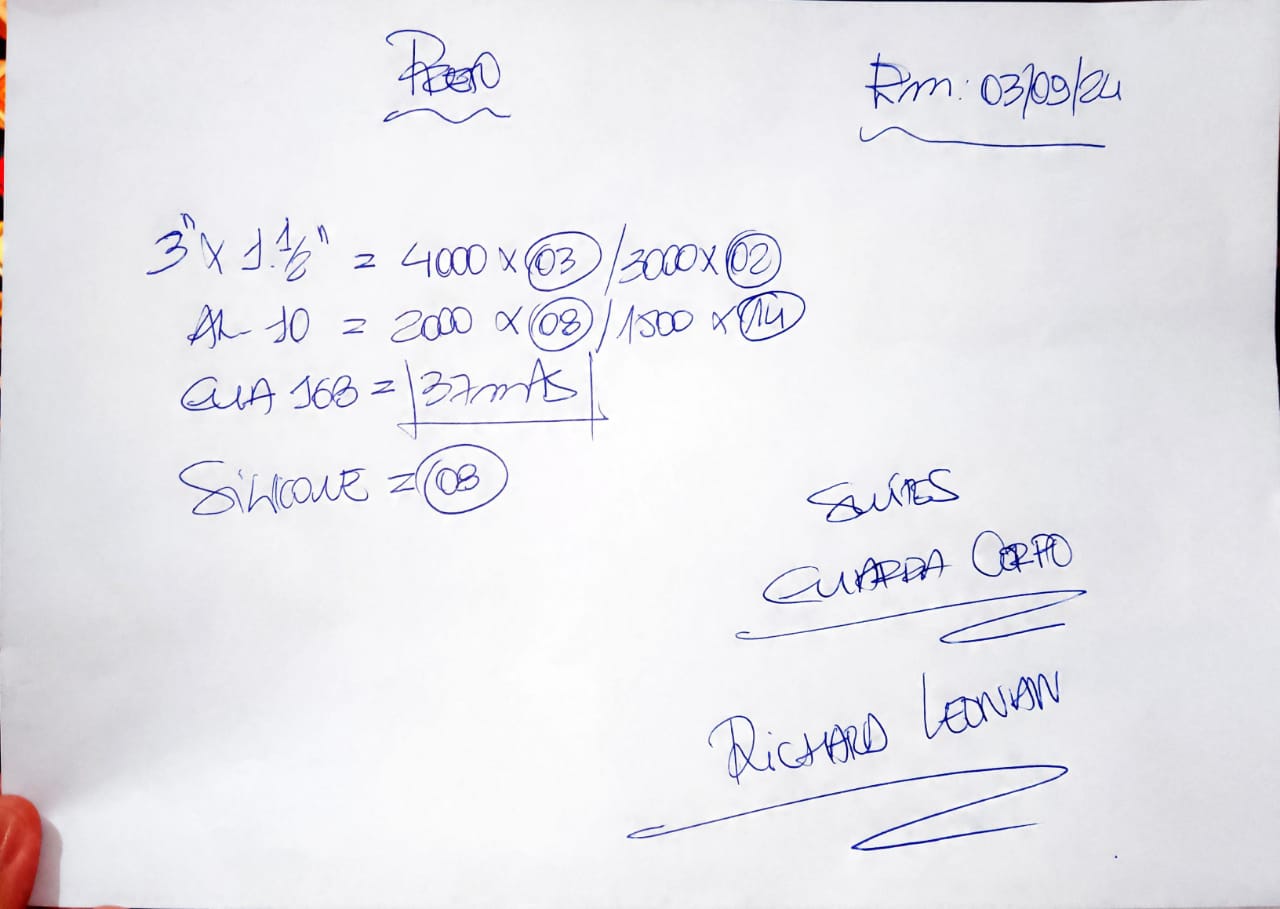 Rm: 03/09/24
3" X 1.1/2" = 4000 x 03 / 3000 x 02
AL 10 = 2000 x 08 / 1500 x 14
GUA 163 = 37mts
SiLICONE = 08
SUÍTES
GUARDA CORPO
RICHARD LEONAN